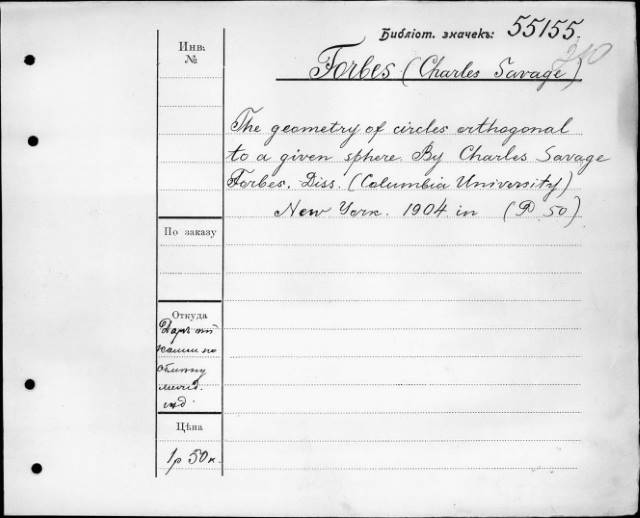 Библіот. значекъ: 55155.
210
Forbes (Charles Savage)
Инв.
№
The geometry of circles orthogonal
to a given sphere. By Charles Savage
Forbes. Diss. (Columbia University)
New York. 1904. in (P. 50)
По заказу
Откуда
Даръ от
по
Обмену
изд.
Цѣна
1 р 50 к.